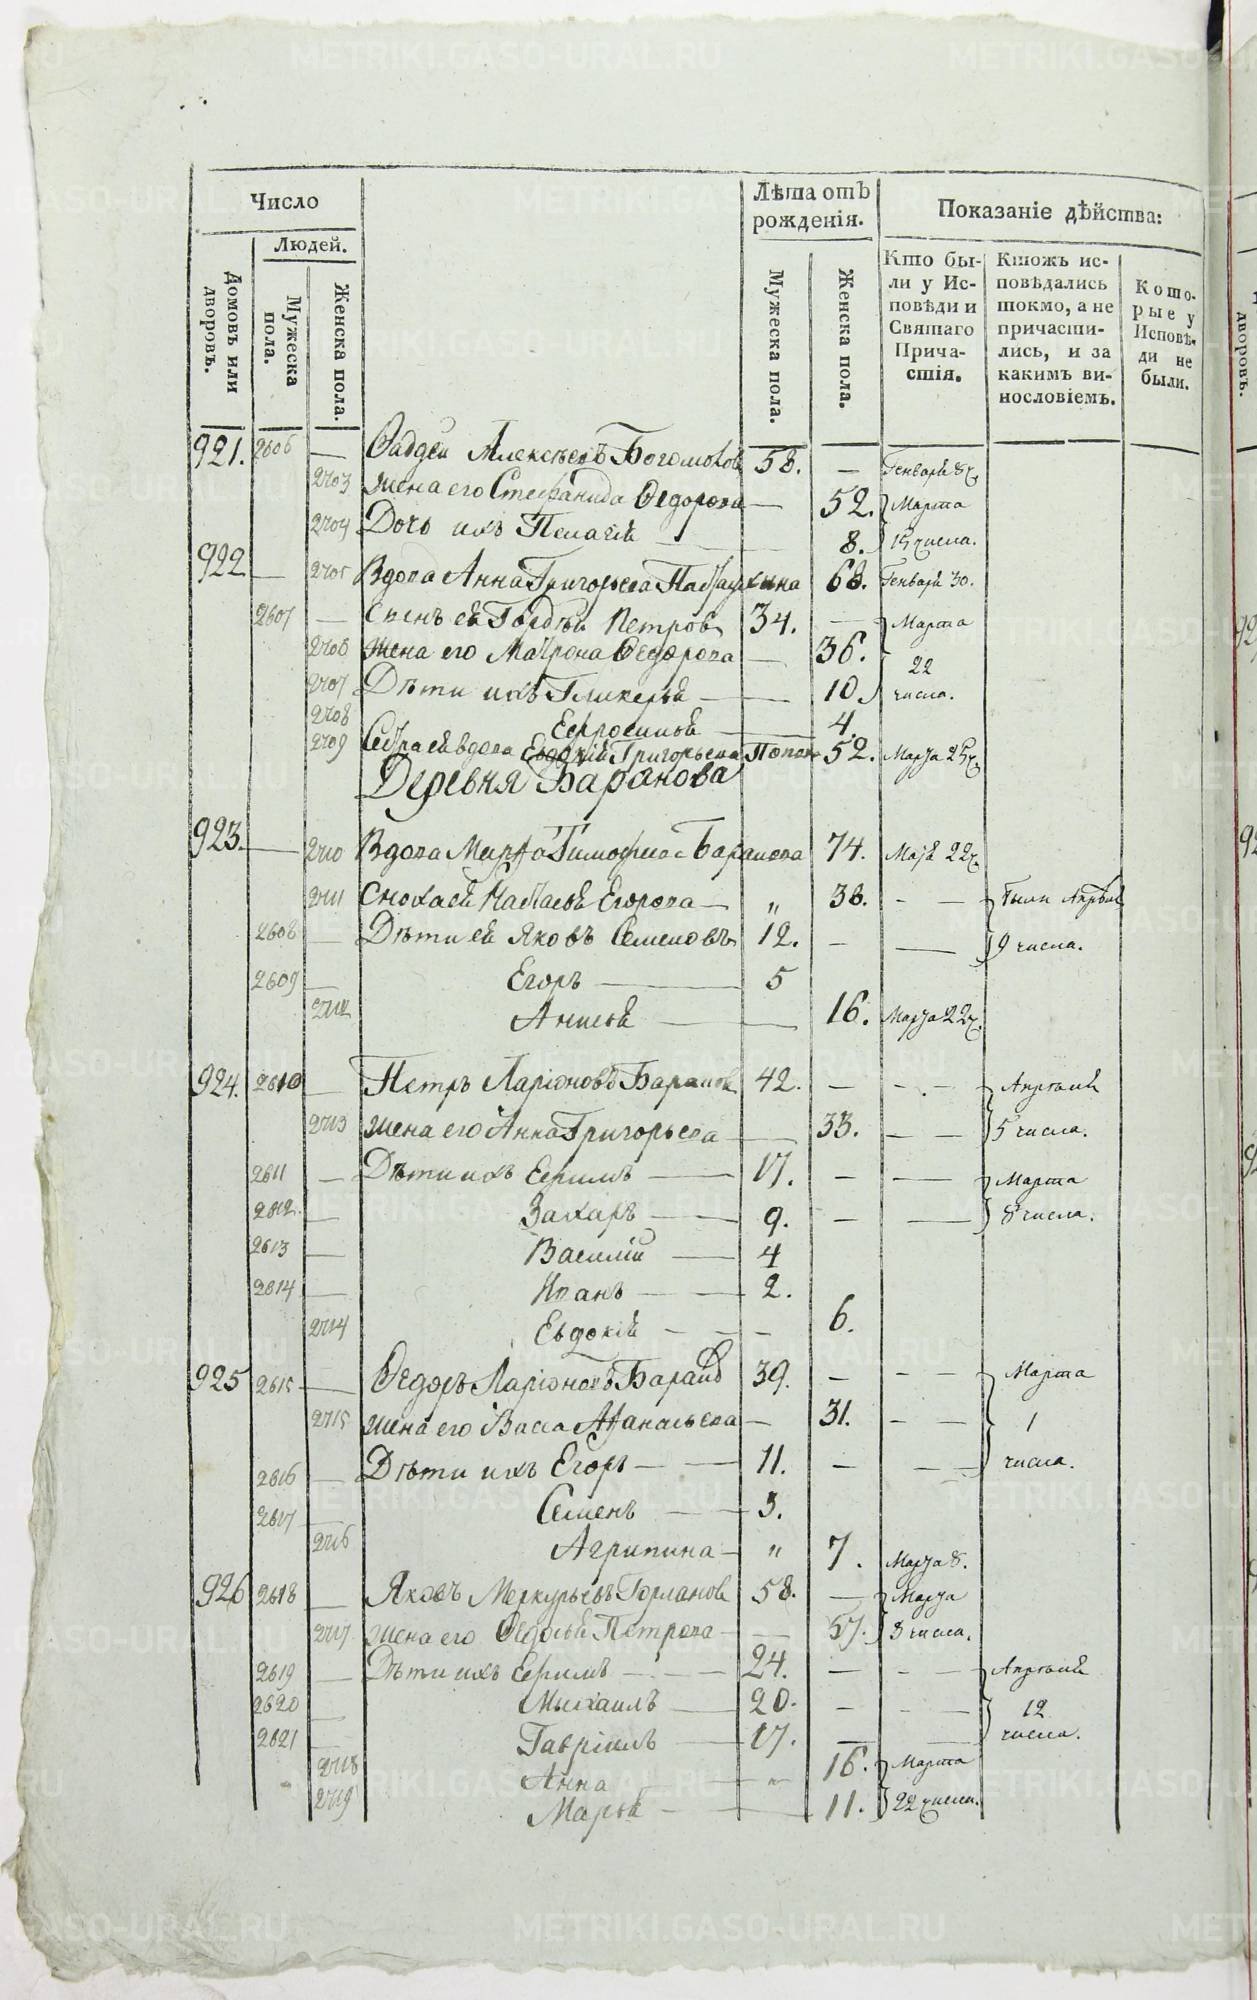 Число
Людей.
Домовъ или дворовъ.
Мужеска пола.
Женска пола.
Лѣта отъ рожденія.
Мужеска пола.
Женска пола.
Показаніе дѣйства:
Кто были у Исповѣди и Святаго Причастія.
Ктожъ исповѣдались токмо, а не причастились, и за какимъ винословіемъ.
Которые у Исповѣди не были.
921. 2606 — Фадѣй Алексѣевъ Богомоловъ 58. — Генваря 8ч.
2703 жена его Стефанида Федорова — 52. Марта
2704 Дочь ихъ Пелагія — 8. 15 числа.
922 — 2705 Вдова Анна Григорьева 68. Генваря 30.
2607 — Сынъ ея Гордѣй Петровъ 34. — Марта
2706 Жена его Матрона Федорова — 36. 22
2707 Дѣти ихъ Гликерія — 10. числа.
2708 Ефросинія — 4.
2709 Сестра ей вдова Евдокія Григорьева 52. Марта 25ч.
Деревня Баранова
923. — 2710 Вдова Марфа Тимофеева Баранова 74. Маія 22ч.
2711 Сноха ей Наталья Егорова — „ 38. — — были Апрѣля
2608 — Дѣти ей Яковъ Семеновъ 12. — — 9 числа.
2609 — Егоръ — 5
2712 Анисія — — 16. Марта 22ч.
924. 2610 — Петръ Ларіоновъ Барановъ 42. — - - - Апрѣля
2713 жена его Анна Григорьева — 33. — — 5 числа.
2611 — Дѣти ихъ Ефимъ — 17. — — Марта
2612. — Захаръ — 9. — — 8 числа.
2613 — Василій — 4
2614 — Иванъ — 2.
2714 Евдокія — — — 6.
925 2615 — Федоръ Ларіоновъ Баранов 39. — - — Марта
2715 жена его Васса Афанасьева — 31. — — 1
2616 — Дѣти ихъ Егоръ — 11. — — числа.
2617 — Семенъ — 3.
2716 Агрипина — „ 7. Марта 8.
926 2618 — Яковъ Меркурьевъ 58. — Марта
2717 жена его Федосья Петрова — 57. 8 числа.
2619 — Дѣти ихъ Ефимъ — 24. — - — Апрѣля
2620 — Михаилъ — 20. — - — 12
2621 — Гавріилъ — 17. — — числа.
2718 Анна — „ 16. Марта
2719 Марья — 11. 22 числа.
дворовъ.
METRIKI.GASO-URAL.RU